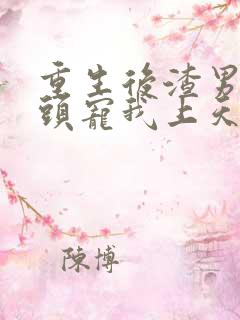 重生後渣男
頭寵我上天
陳博